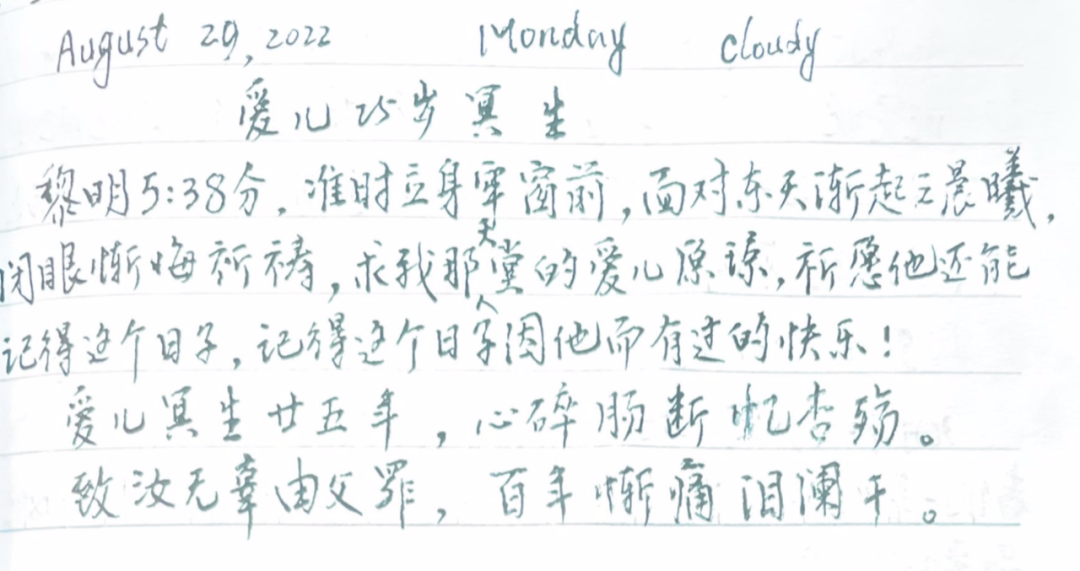 August 29, 2022 Monday cloudy
爱儿25岁冥生
黎明5:38分，准时立身牢窗前，面对东天渐起之晨曦，
闭眼惭悔祈祷，求我那天堂的爱儿原谅，祈愿他还能
记得这个日子，记得这个日子人因他而有过的快乐！
爱儿冥生廿五年，心碎肠断忆杏殇。
致汝无辜由父罪，百年惭痛泪澜干。